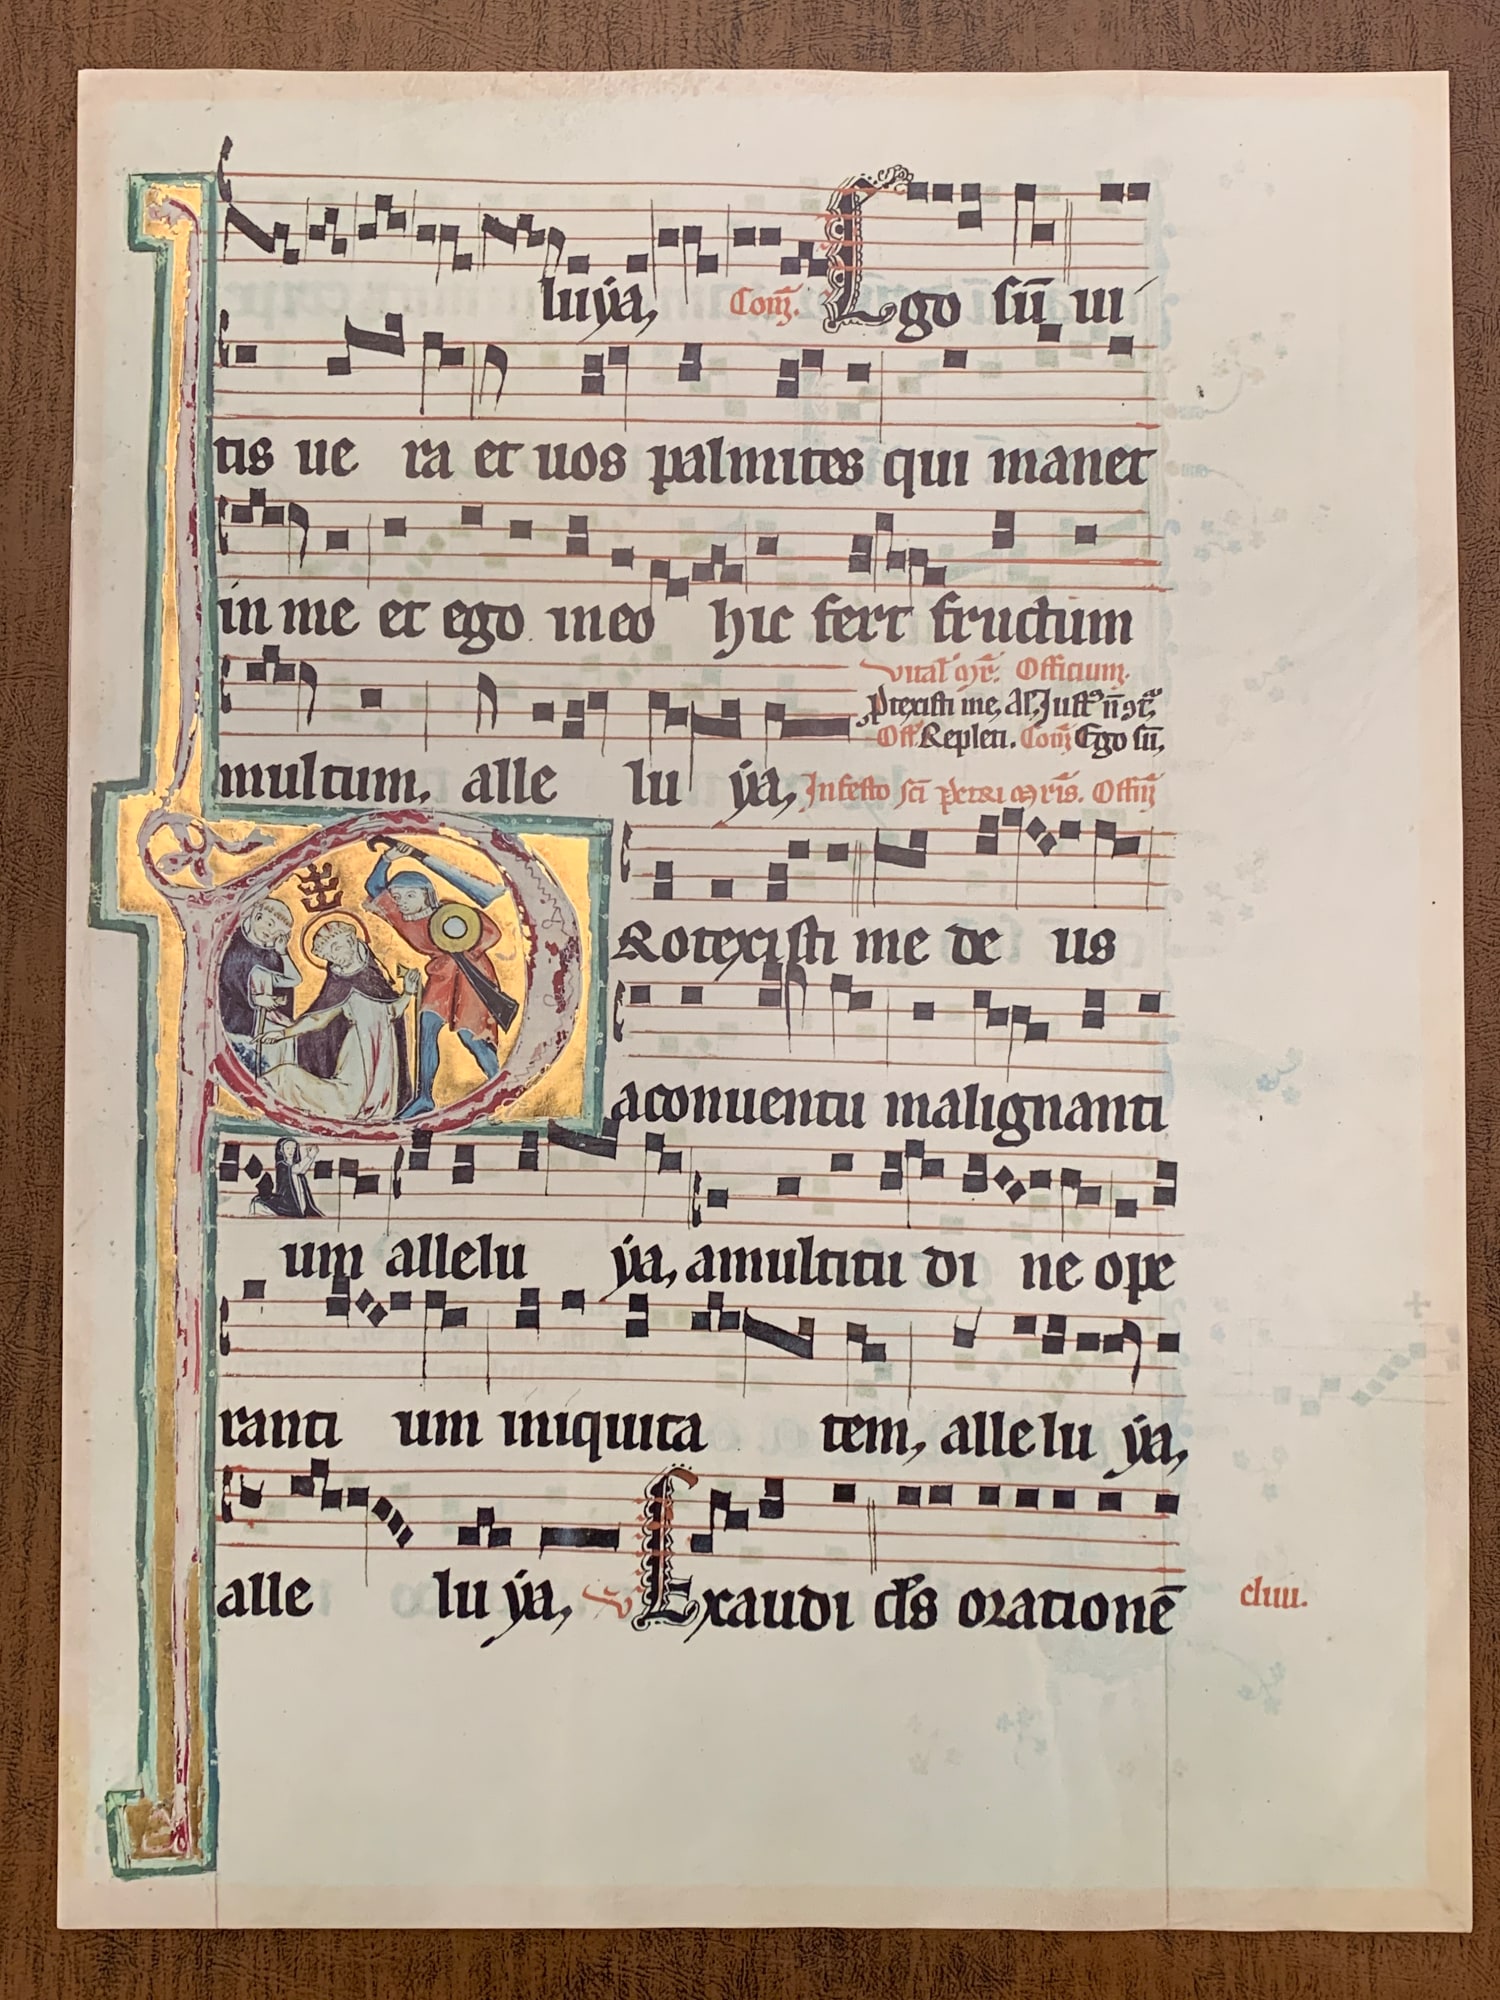 luÿa, Com̄. Ego su̅ ui
tis ue ra et uos palmites qui manet
in me et ego in eo hic fert fructum
multum, alle lu ÿa,
Officium.
Off Repleti. Com̄ Ego su̅,
In festo sc̅i petri mr̅is. Offm̅
Rotexisti me de us
a conuentu malignanti
um allelu ÿa, a multitu di ne ope
ranti um iniquita tem, alle lu ÿa,
alle lu ÿa, V Exaudi ds̅ oratione̅
cliiii.